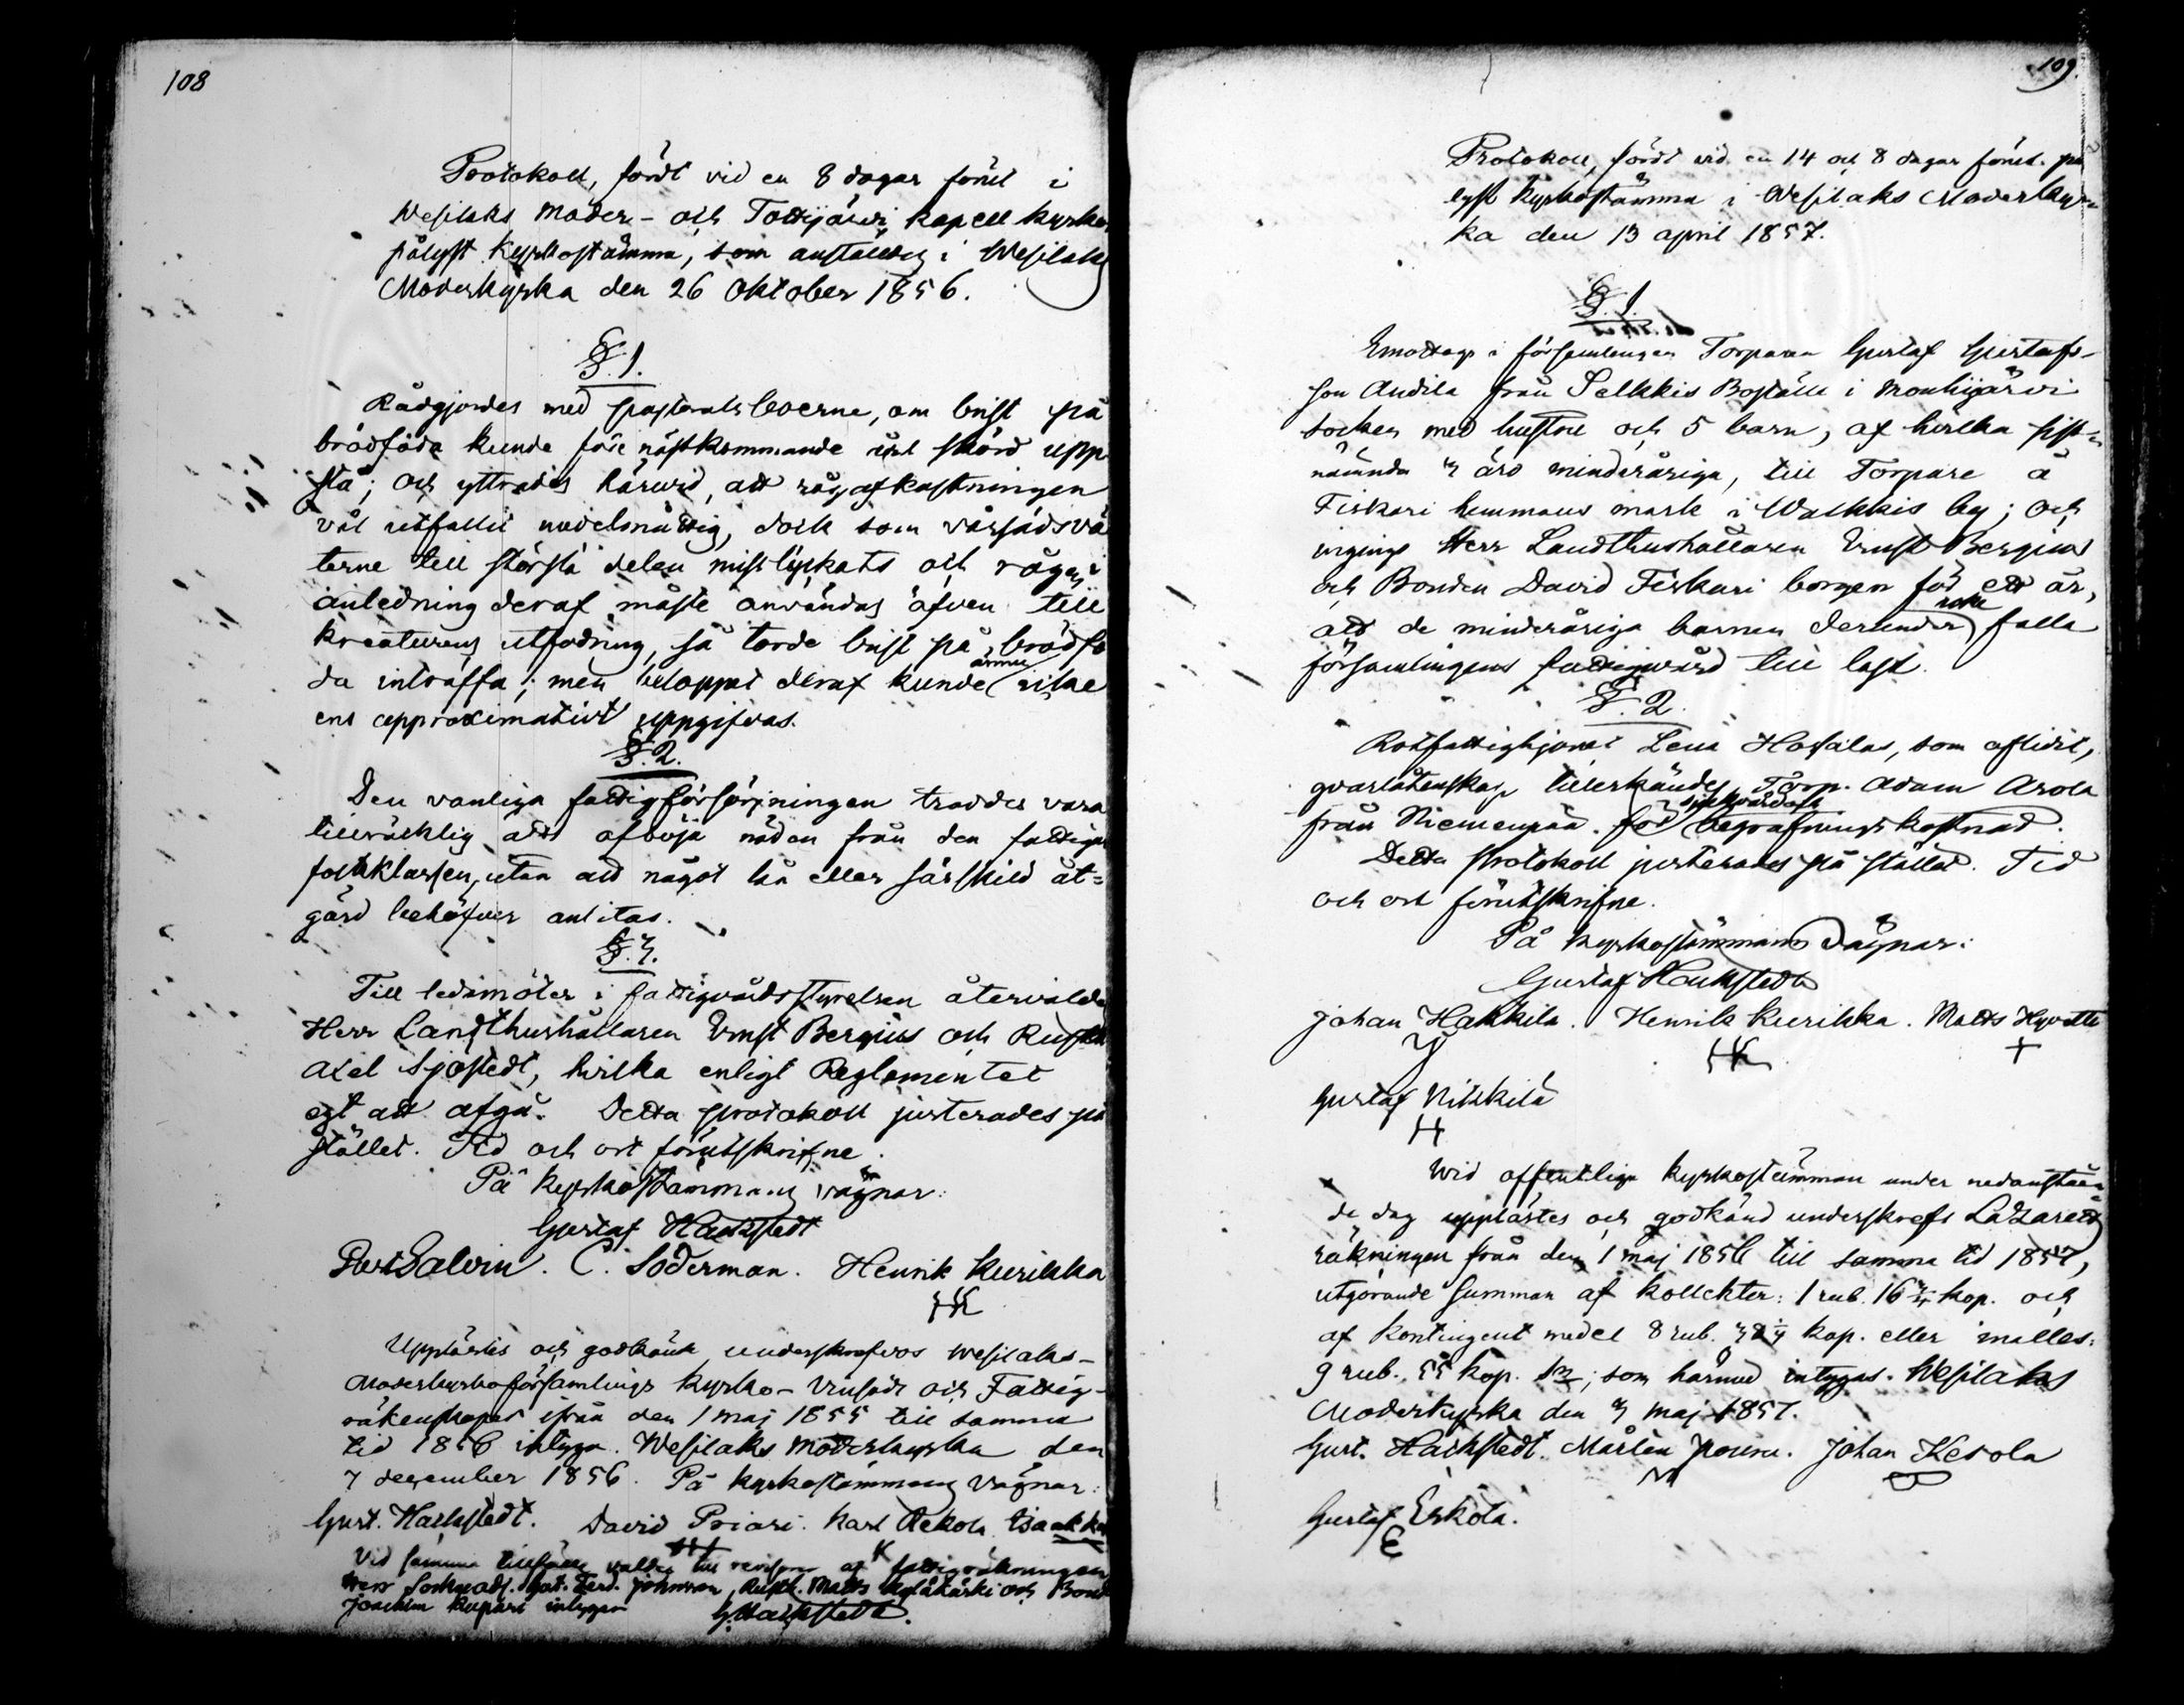 108
Protokoll, fördt vid en 8 dagar förut i
Wesilaks Moder- och Tottijärwi kapell kyrka
pålyst Kyrkostämma, som anstäldes i Wesilaks
Moderkyrka den 26 Oktober 1856.
§. 1.
Rådgjordes med pastoratsboerne, om brist på
brödföda kunde före nästkommande års skörd upp
stå; och yttrades härwid, att rågafkastningen
väl utfallit medelmåttig, dock som vårsädsvä
terne till största delen misslyckats och rågen i
anledning deraf måste användas äfven till
kreaturens utfodring, så torde brist på brödfö
da inträffa; men beloppet deraf kunde ännu icke
ens approximativt uppgifvas.
§. 2.
Den vanliga fattigförsörjningen troddes vara
tillräcklig att afböja nöden från den fattigare
folkklassen, utan att något lån eller särskild åt-
gärd behöfver anlitas.
§. 3.
Till ledamöter i fattigvårdsstyrelsen återvaldes
Herr Landthushållaren Ernst Bergius och Rusth.
Axel Sjöstedt, hvilka enligt Reglementet
egt att afgå. Detta protokoll justerades på
stället. Tid och ort förutskrifne.
På Kyrkostämmans vägnar:
Gustaf Hackstedt
C. Söderman. Henrik Kurikka
HK
Upplästes och godkänd underskrefvos Wesilaks-
Moderkyrkoförsamlings Kyrko- och Fattig-
räkenskaper ifrån den 1 maj 1855 till samma
tid 1856 intyga. Wesilaks Moderkyrka den
7 december 1856. På kyrkostämmans vägnar:
Gust. Hackstedt. David Priari. Karl
Vid samma tillfälle valdes till revisorer af fattigräkningen
Herr Ferd. Johnsson, Rusth. Matts och Bond
Joachim Kupari intygar G. Hackstedt.
109.
Protokoll, fördt vid en 14 och 8 dagar förut på
lyst kyrkostämma i Wesilaks Moderkyr-
ka den 13 april 1857.
§. 1.
Emottogs i församlingen Torparen Gustaf Gustafs-
son Audila från Selkkis Boställe i Mouhijärwi
socken med hustru och 5 barn, af hvilka sist-
nämnda 3 äro minderåriga, till Torpare å
Fiskari hemmans mark i Walkkis by; och
ingingo Herr Landthushållaren Ernst Bergius
och Bonden David Fiskari borgen för ett år,
att de minderåriga barnen derunder icke falla
församlingens fattigvård till last.
§. 2.
Rotfattighjonet Lena Hotalas, som aflidit,
qvarlåtenskap tillerkändes Torp. Adam Arola
från Niemenpää. för sjukvård och begrafningskostnad.
Detta protokoll justerades på stället. Tid
och ort förutskrifne.
På kyrkostämmans vägnar:
Gustaf Hackstedt
Johan Hakkila. Henrik Kurikka. Matts
HK +
Gustaf Nikkilä
H
Wid offentliga kyrkostämman under nedanståen
de dag upplästes och godkänd underskrefs Lazaretts
räkningen från den 1 maj 1856 till samma tid 1857,
utgörande summan af kollekter: 1 rub. 16 kop. och
af kontingent medel 8 rub. kop. eller inalles:
9 rub. 55 kop. som härmed intygas. Wesilaks
Moderkyrka den 3 maj 1857.
Gust. Hackstedt. Mårten Johan Kesola
Gustaf Eskola.
E